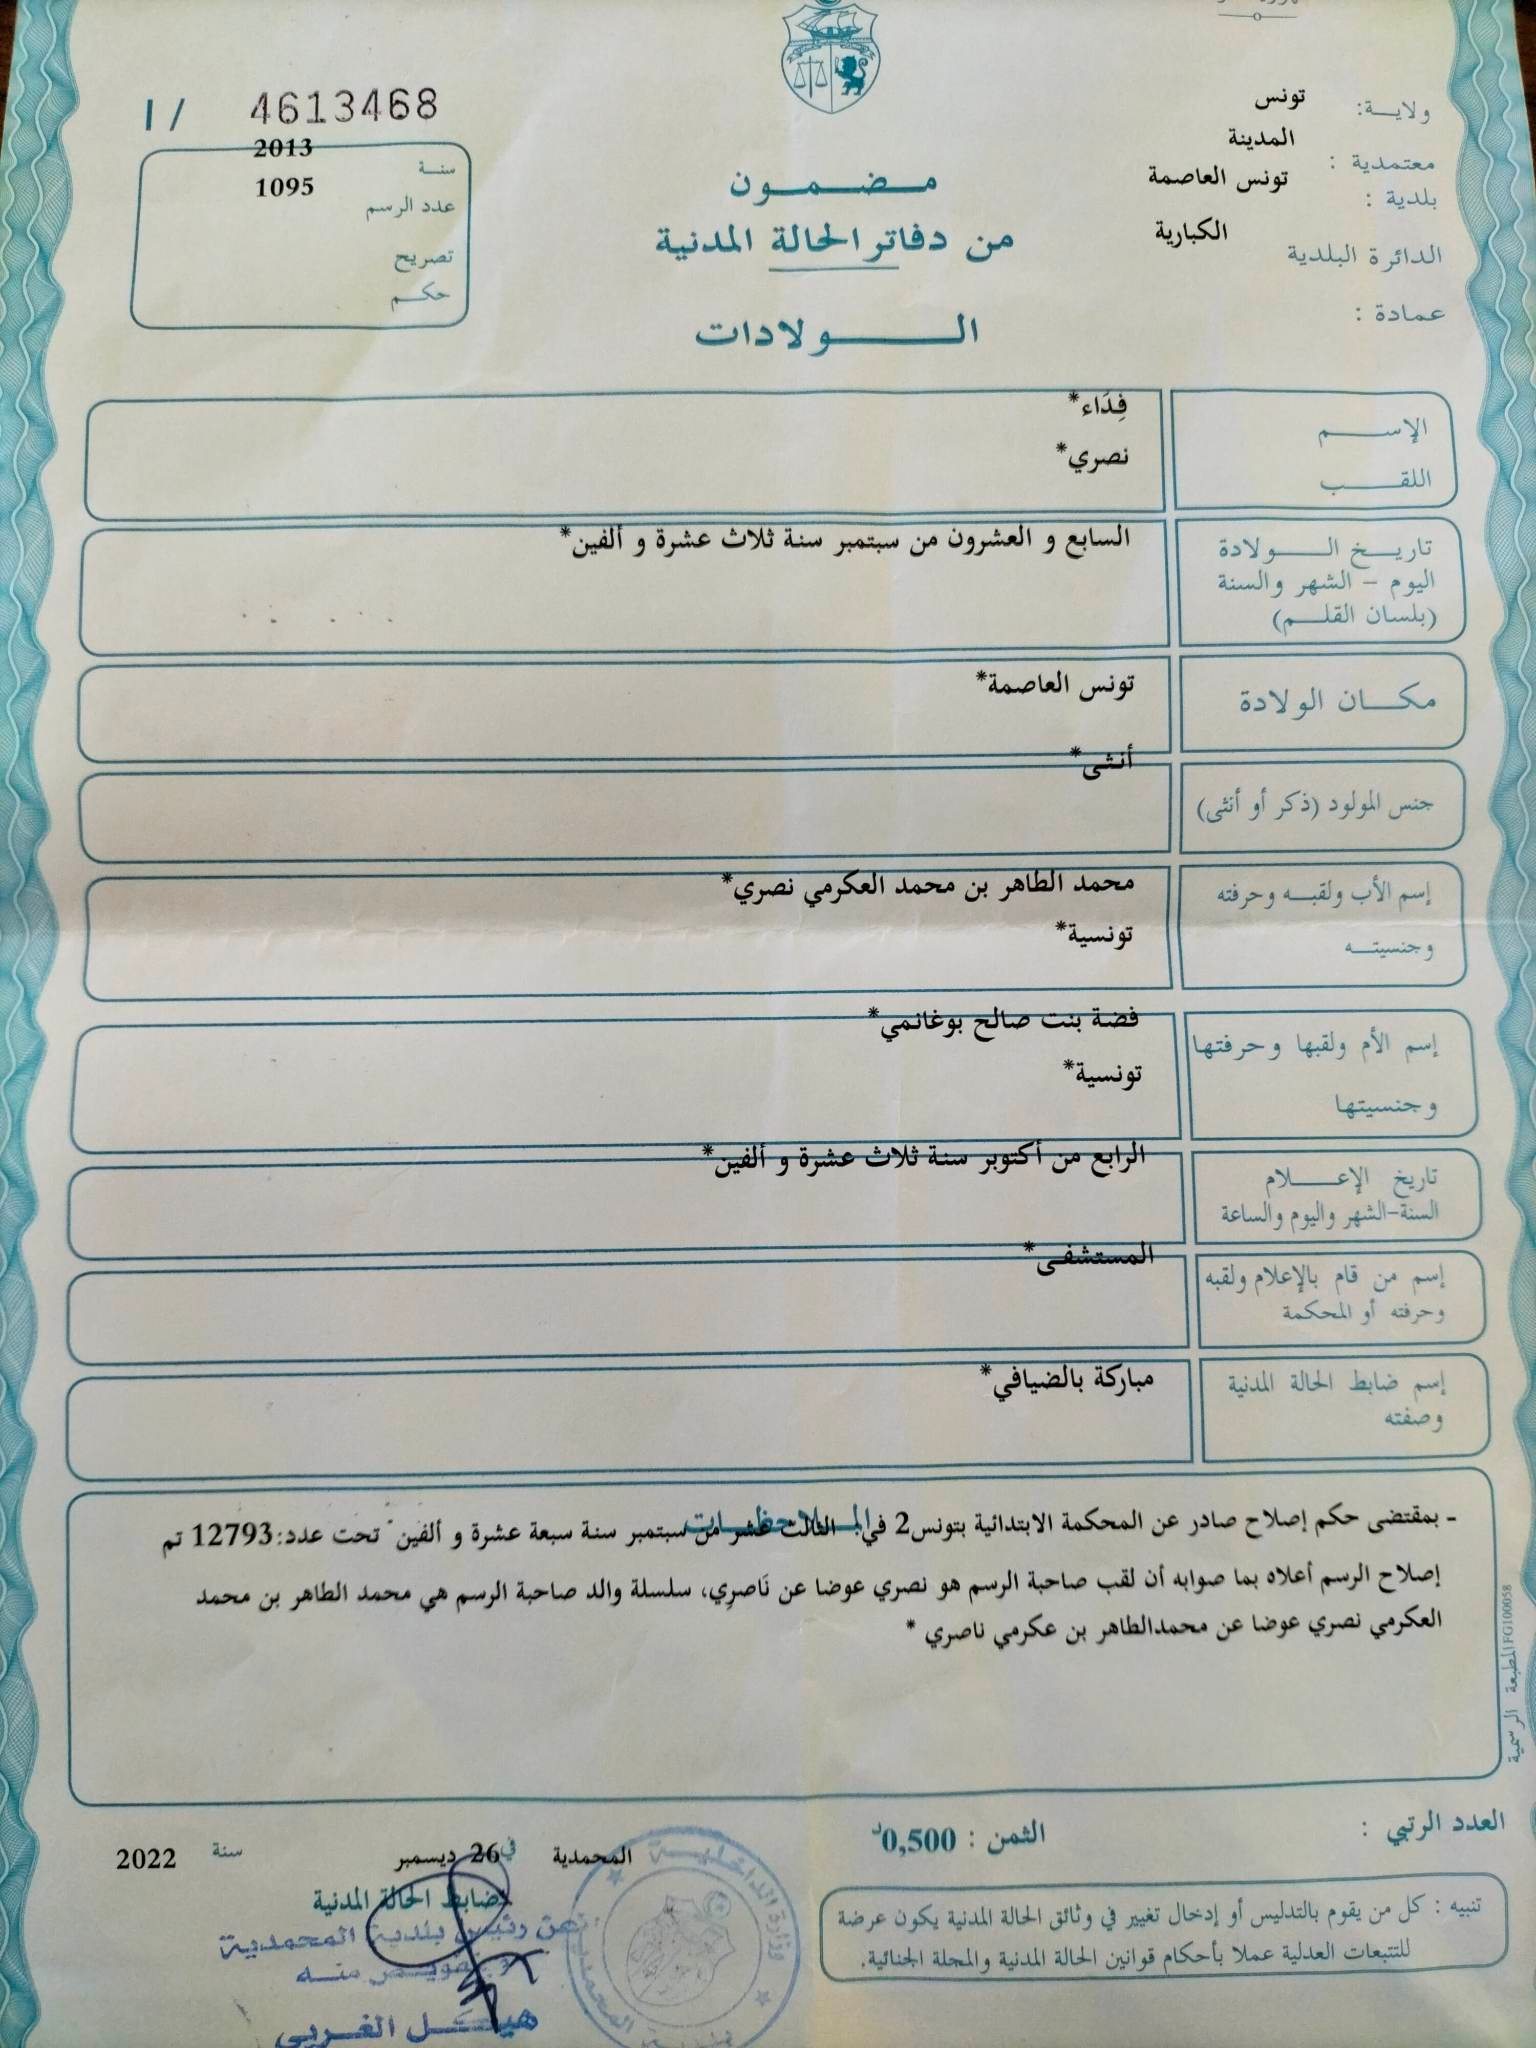 ولايـــة: تونس
معتمدية : المدينة
بلدية : تونس العاصمة
الدائرة البلدية الكبارية
عمادة :
I / 4613468
سنــة 2013
عدد الرسم 1095
تصريح
حكـــم
مـــضـــمـــون
من دفاتر الحالة المدنية
الـــــولادات
الإســـــم فِدَاء*
اللقـــــب نصري*
تاريـــخ الـــــولادة السابع و العشرون من سبتمبر سنة ثلاث عشرة و ألفين*
اليوم - الشهر والسنة
(بلسان القلـــم)
مكـــان الولادة تونس العاصمة*
جنس المولود (ذكر أو أنثى) أنثى*
إسم الأب ولقبـــه وحرفته محمد الطاهر بن محمد العكرمي نصري*
وجنسيتـــه تونسية*
إسم الأم ولقبها وحرفتها فضة بنت صالح بوغانمي*
وجنسيتها تونسية*
تاريخ الإعـــــلام الرابع من أكتوبر سنة ثلاث عشرة و ألفين*
السنة-الشهر واليوم والساعة
إسم من قام بالإعلام ولقبه المستشفى*
وحرفته أو المحكمة
إسم ضابط الحالة المدنية مباركة بالضيافي*
وصفته
المـــلاحظـــات
- بمقتضى حكم إصلاح صادر عن المحكمة الابتدائية بتونس2 في: الثالث عشر من سبتمبر سنة سبعة عشرة و ألفين تحت عدد:12793 تم
إصلاح الرسم أعلاه بما صوابه أن لقب صاحبة الرسم هو نصري عوضا عن نَاصرِي، سلسلة والد صاحبة الرسم هي محمد الطاهر بن محمد
العكرمي نصري عوضا عن محمدالطاهر بن عكرمي ناصري *
المطبعة الرسمية FG100058
العدد الرتبي :
الثمن : 0,500د
المحمدية في 26 ديسمبر سنة 2022
ضابط الحالة المدنية
عن رئيس بلدية المحمدية
وبتفويض منه
هيكـــل الغربي
وزارة الداخلية
بلدية المحمدية
تنبيه : كل من يقوم بالتدليس أو إدخال تغيير في وثائق الحالة المدنية يكون عرضة
للتتبعات العدلية عملا بأحكام قوانين الحالة المدنية والمجلة الجنائية.